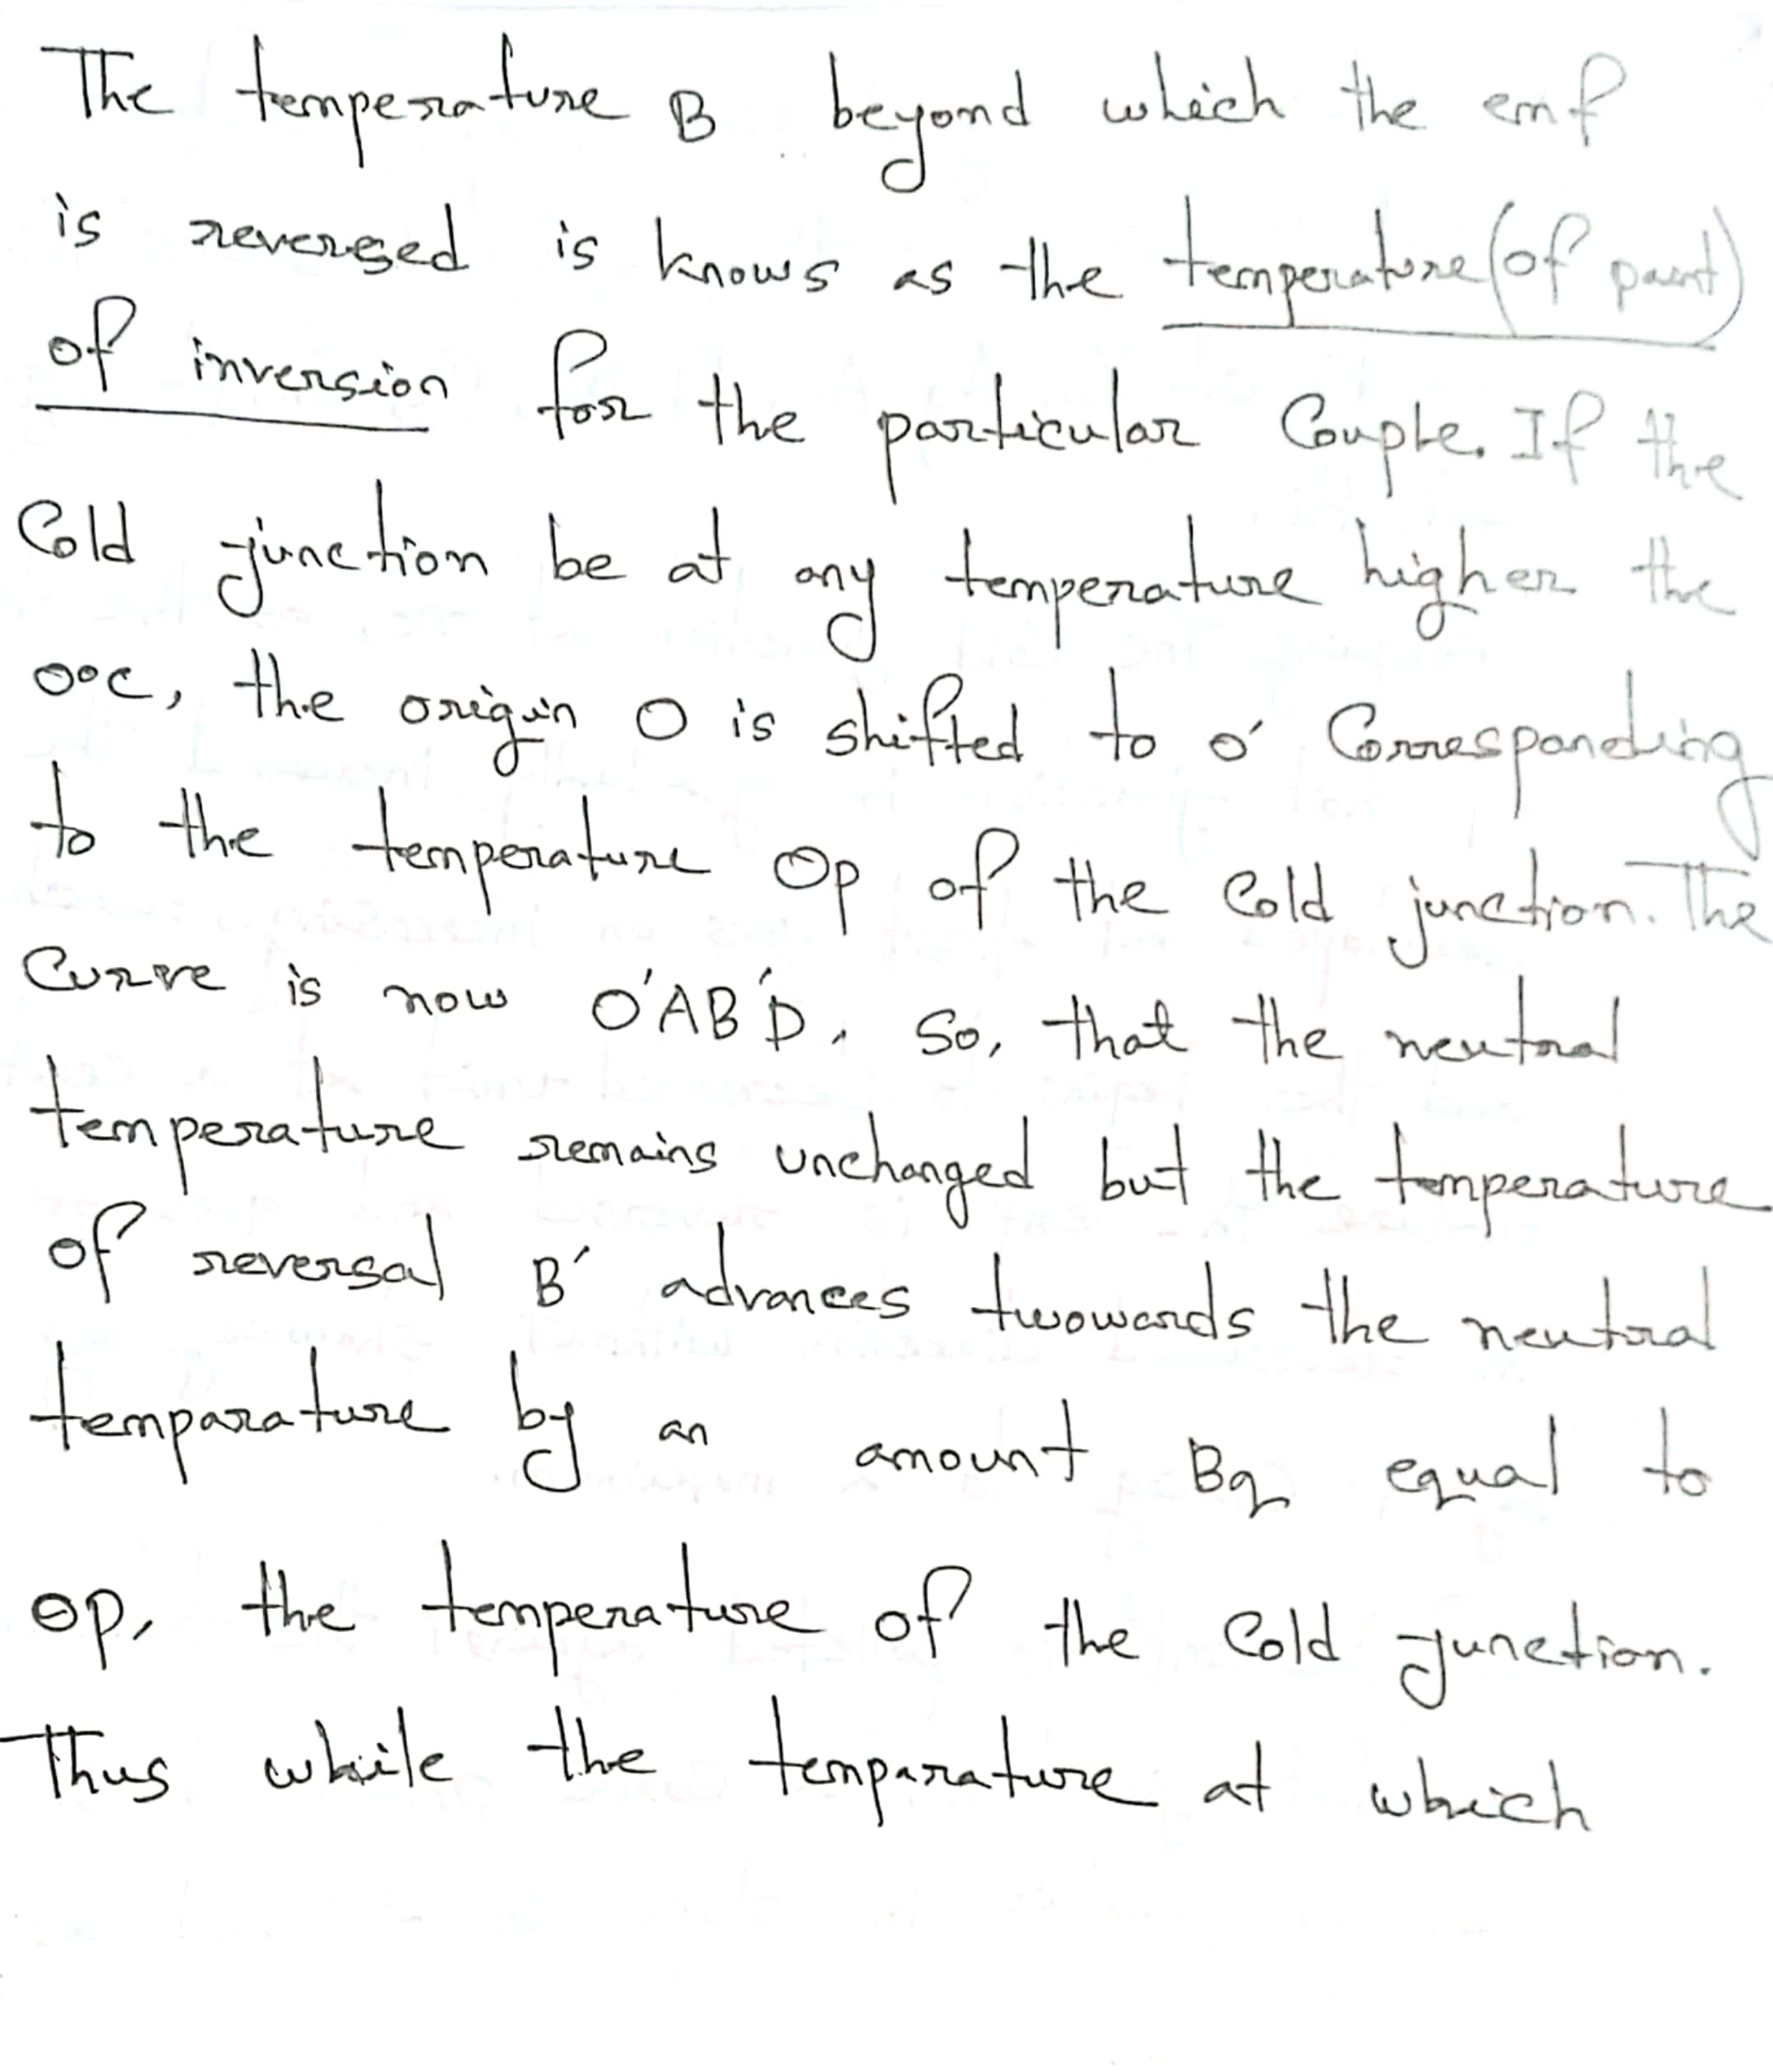 The temperature B beyond which the emf
is reversed is knows as the temperature (of paint)
of inversion for the particular Couple. If the
Cold junction be at any temperature higher the
0°C, the origin O is shifted to O' Corresponding
to the temperature Op of the Cold junction. The
Curve is now O'AB'D. So, that the neutral
temperature remains unchanged but the temperature
of reversal B' advances twowards the neutral
temparature by an amount Bq equal to
OP, the temperature of the Cold junction.
Thus while the temparature at which